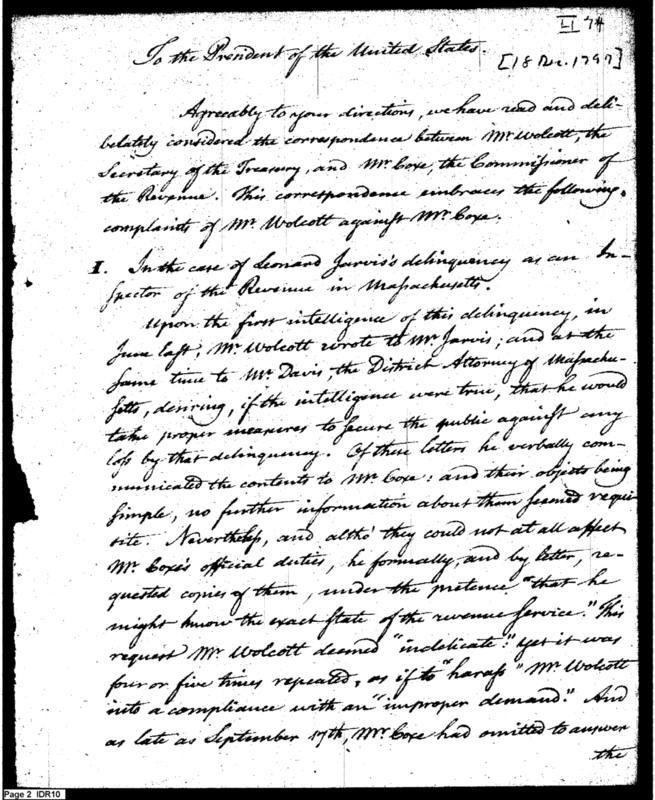 LI 74
To the President of the United States.
[18 Dec. 1797]
Agreeably to your directions, we have read and deli-
berately considered the correspondence between Mr. Wolcott, the
Secretary of the Treasury, and Mr. Coxe, the Commissioner of
the Revenue. This correspondence embraces the following
complaints of Mr. Wolcott against Mr. Coxe.
I. In the case of Leonard Jarvis's delinquency as an In-
spector of the Revenue in Massachusetts.
Upon the first intelligence of this delinquency, in
June last, Mr. Wolcott wrote to Mr. Jarvis; and at the
same time to Mr. Davis, the District Attorney of Massachu-
setts, desiring, if the intelligence were true, that he would
take proper measures to secure the public against any
loss by that delinquency. Of these letters he verbally com-
municated the contents to Mr. Coxe: and their objects being
simple, no further information about them seemed requi
site. Nevertheless, and altho' they could not at all affect
Mr. Coxe's official duties, he formally, and by letter, re-
quested copies of them, under the pretence "that he
might know the exact State of the revenue service." This
request Mr. Wolcott deemed "indelicate:" yet it was
four or five times repeated, as if to "harass" Mr. Wolcott
into a compliance with an "improper demand." And
as late as September 17th, Mr. Coxe had omitted to answer
the
Page 2 IDR10